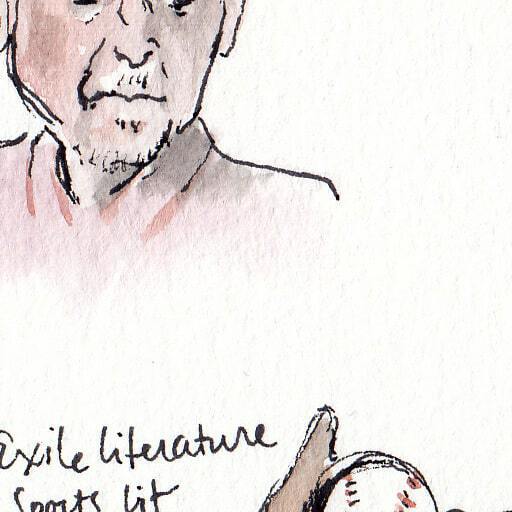 Exile literature
Sports lit